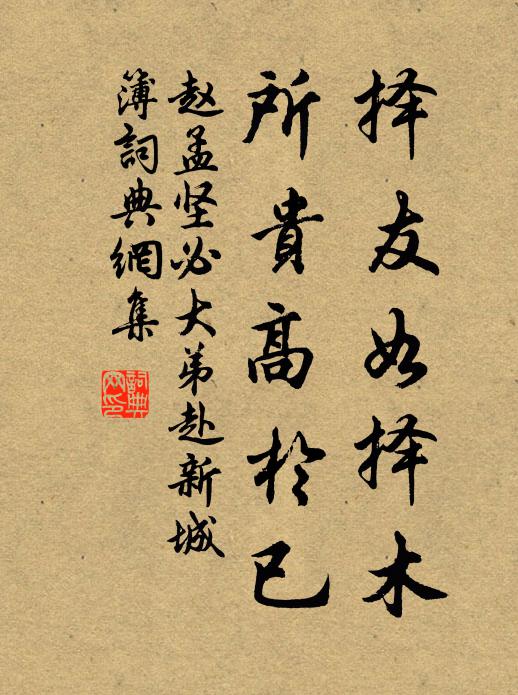 择友如择木
所貴高於已
赵孟坚必大弟赴新城
簿詞典網集
詞典
网印